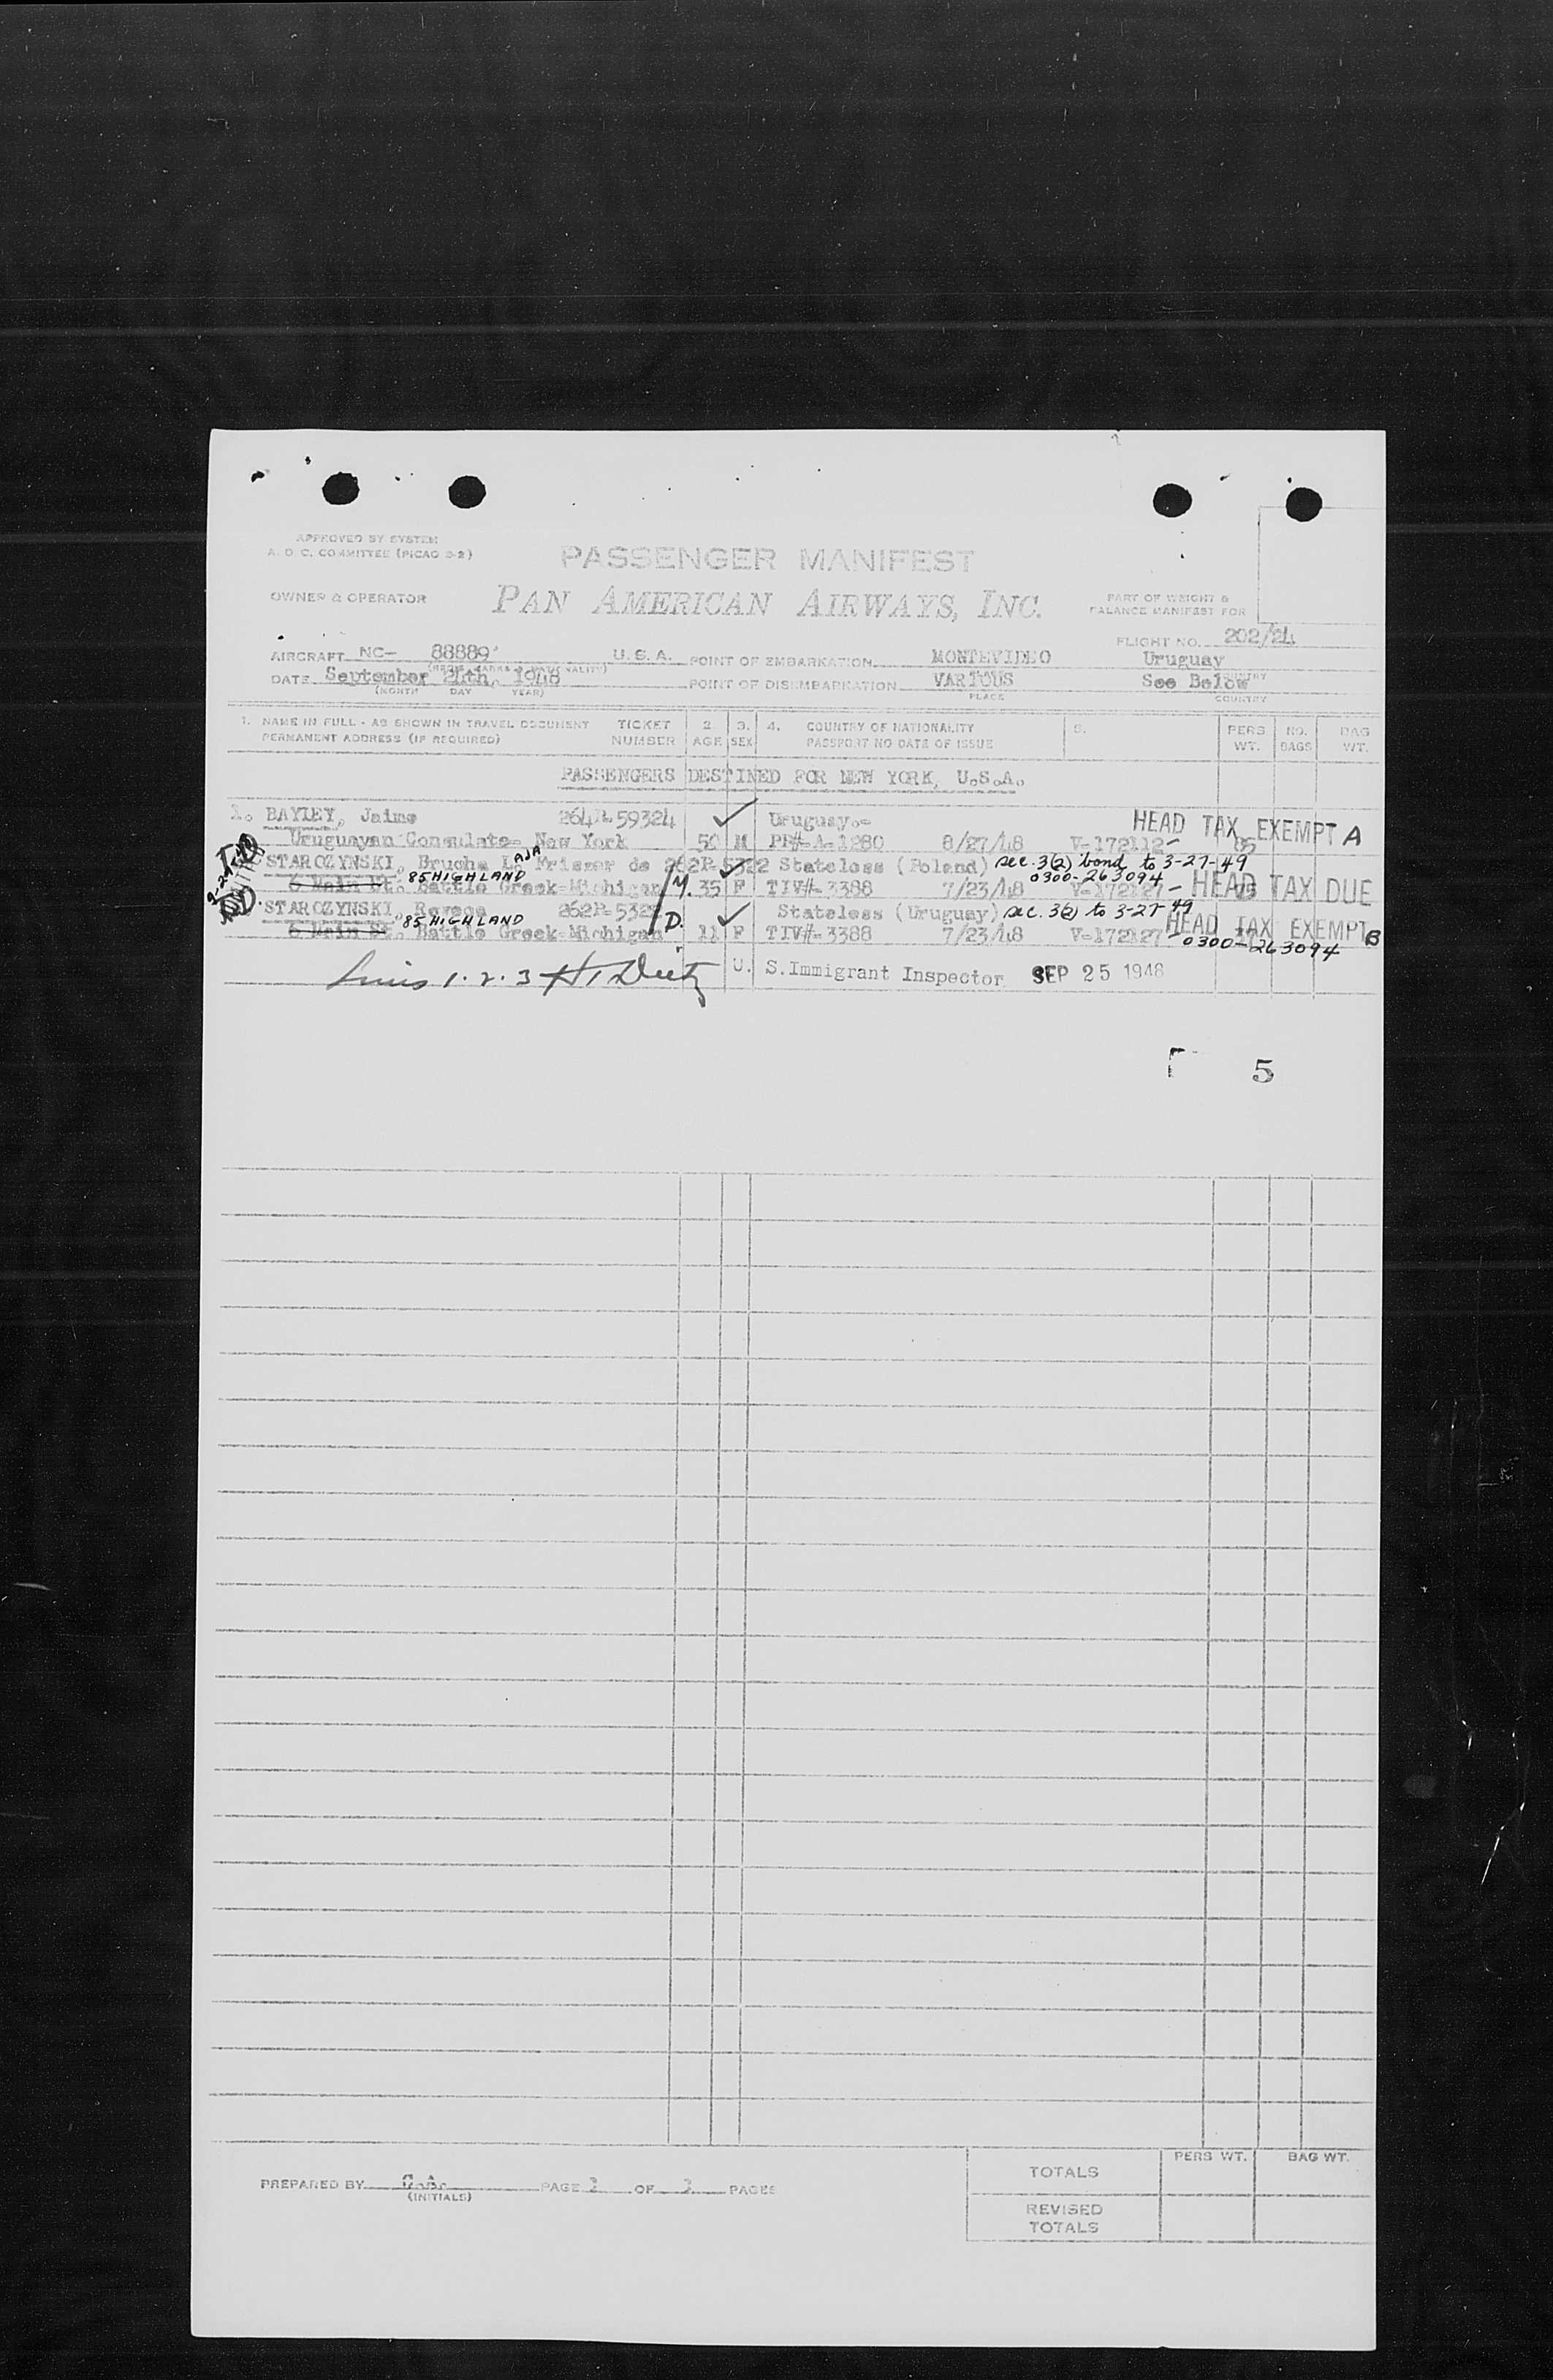 APPROVED BY SYSTEM
A. O. C. COMMITTEE (PICAO 9-2)
PASSENGER MANIFEST
OWNER & OPERATOR
PAN AMERICAN AIRWAYS, INC.
PART OF WEIGHT &
BALANCE MANIFEST FOR
FLIGHT NO. 202/24
AIRCRAFT NC- 88889 U. S. A. POINT OF EMBARKATION MONTEVIDEO Uruguay
DATE September 24th, 1948 POINT OF DISEMBARKATION VARIOUS See Below
(MONTH DAY YEAR) PLACE COUNTRY
1. NAME IN FULL - AS SHOWN IN TRAVEL DOCUMENT TICKET 2. 3. 4. COUNTRY OF NATIONALITY 5. PERS NO. BAG
PERMANENT ADDRESS (IF REQUIRED) NUMBER AGE SEX PASSPORT NO DATE OF ISSUE WT. BAGS WT.
PASSENGERS DESTINED FOR NEW YORK, U.S.A.
1. BAYLEY, Jaime 264R-59324 Uruguay.- HEAD TAX EXEMPT A
Uruguayan Consulate- New York 50 M PP#-A-1280 8/27/48 V-172112- 85
STAROZYNSKI, Friszer de 262R-5322 Stateless (Poland) sec. 3(2) bond to 3-27-49
6 Main St. 85 HIGHLAND Battle Creek-Michigan M. 35 F TIV#-3388 7/23/48 V-172127- HEAD TAX DUE
0300-263094
STAROZYNSKI, 262R-532 Stateless (Uruguay) sec. 3(2) to 3-27-49
6 Main St. 85 HIGHLAND Battle Creek-Michigan D. 11 F TIV#-3388 7/23/48 V-172127- HEAD TAX EXEMPT B
0300-263094
1. 2. 3 U. S. Immigrant Inspector SEP 25 1948
5
TOTALS PERS WT. BAG WT.
PREPARED BY PAGE OF PAGES
(INITIALS)
REVISED
TOTALS